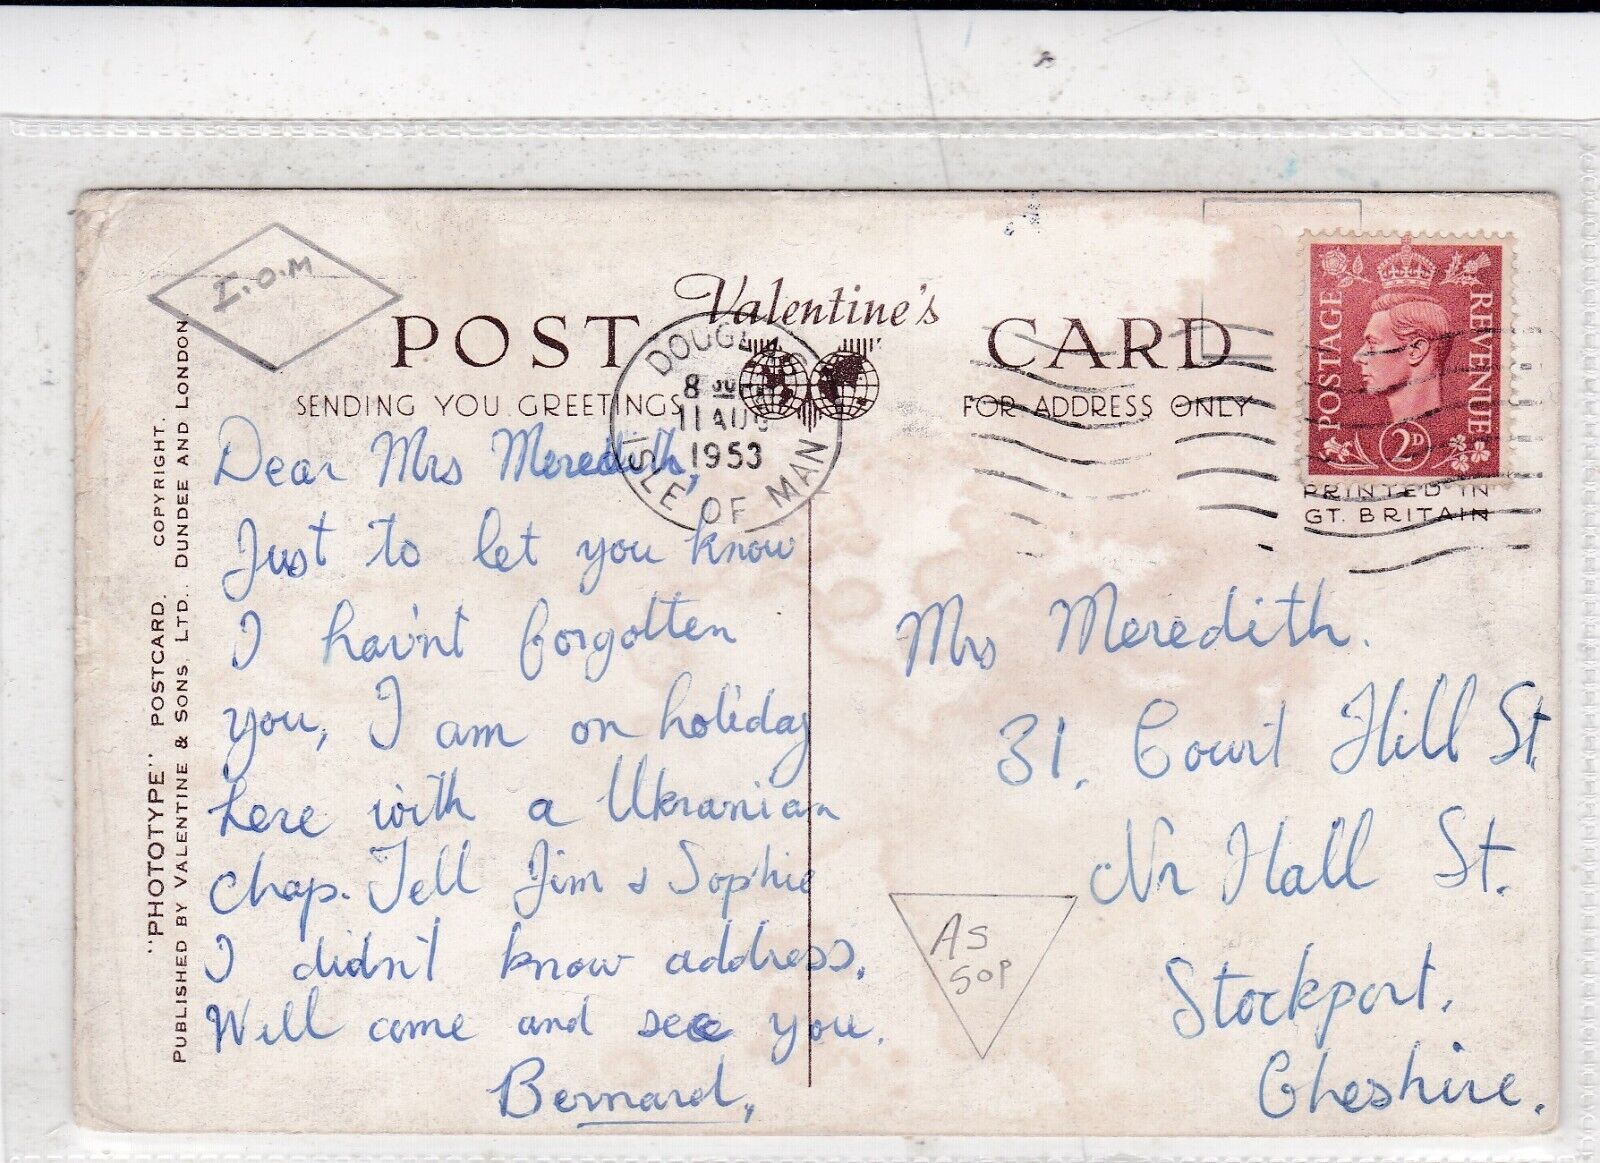 I.O.M
Valentine's
POST CARD
SENDING YOU GREETINGS
FOR ADDRESS ONLY
DOUGLAS
8
11 AUG
1953
ISLE OF MAN
POSTAGE
REVENUE
2D
PRINTED IN
GT. BRITAIN
"PHOTOTYPE" POSTCARD. COPYRIGHT.
PUBLISHED BY VALENTINE & SONS, LTD. DUNDEE AND LONDON.
Dear Mrs Meredith,
Just to let you know
I hav'nt forgotten
you, I am on holiday
here with a Ukranian
chap. Tell Jim & Sophie
I didn't know address.
Will come and see you.
Bernard,,
Mrs Meredith.
31, Court Hill St.
Nr Hall St.
Stockport.
Cheshire.
AS
50P